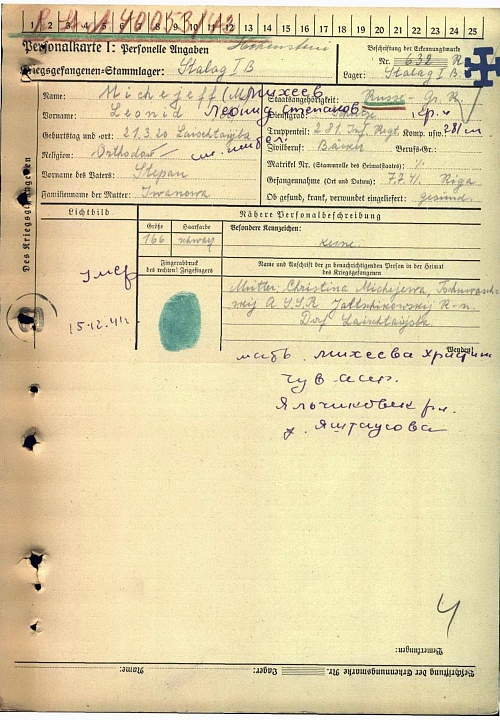 1 2 3 4 5 6 7 8 9 10 11 12 13 14 15 16 17 18 19 20 21 22 23 24 25
Personalkarte I: Personelle Angaben
Hohenstein
Beschriftung der Erkennungsmarke
Nr. 632 R
Kriegsgefangenen-Stammlager: Stalag I B
Lager: Stalag I B
Des Kriegsgefangenen
Name: Michejeff Михеев
Staatsangehörigkeit: Russe
Vorname: Leonid Леонид Степанов
Dienstgrad:
Geburtstag und -ort: 21.3.20
Truppenteil: 281. Inf. Regt. Komp. usw. 281
Religion: Orthodox
Zivilberuf: Bäcker Berufs-Gr.:
Vorname des Vaters: Stepan
Matrikel Nr. (Stammrolle des Heimatstaates) %
Gefangennahme (Ort und Datum): 7.7.41. Riga
Familienname der Mutter: Iwanowa
Ob gesund, krank, verwundet eingeliefert: gesund
Lichtbild
Nähere Personalbeschreibung
Größe Haarfarbe Besondere Kennzeichen:
166 schwarz keine
Fingerabdruck
des rechten! Zeigefingers
Name und Anschrift der zu benachrichtigenden Person in der Heimat
des Kriegsgefangenen
умер
15.12.41
Mutter: Christina Michejewa, Tschuwasch
skij A S S R Jaltschikowskij R-n.
Dorf
Wenden!
мать Михеева Христин
Чув асср.
Яльчиковск рн.
д. Яштаусова
4
Bemerkungen:
Beschriftung der Erkennungsmarke Nr. Lager: Name: